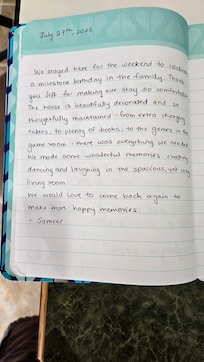 July 27th, 2025
We stayed here for the weekend to celebrate
a milestone birthday in the family. Thank
you left for making our stay so comfortable
The house is beautifully decorated and so
thoughtfully maintained - from extra charging
cables, to plenty of books, to the games in the
game room - there was everything we needed
We made some wonderful memories
dancing and laughing in the spacious, yet
living room.
We would love to come back again to
make more happy memories.
- Sameer